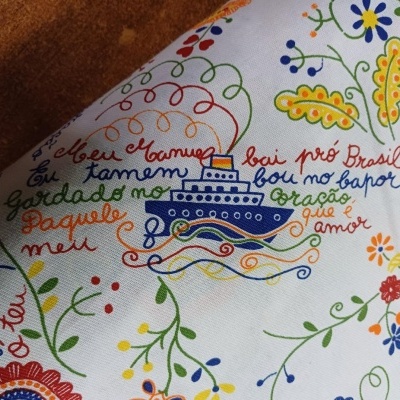 Meu Manuel bai pró Brasil
Eu tamem bou no bapor
Gardado no coração
Daquele que é
meu amor
o teu